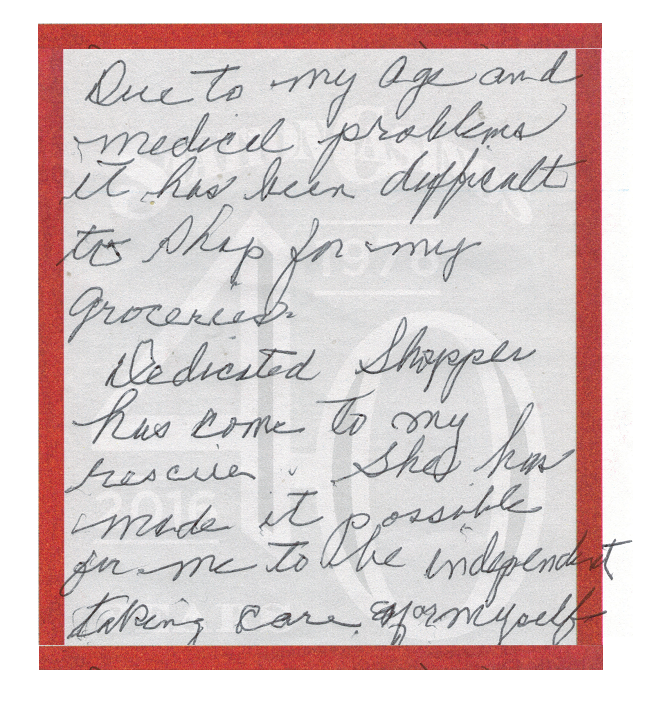 Due to my age and
medical problems
it has been difficult
to shop for my
groceries.
Dedicated Shopper
has come to my
rescue. She has
made it possible
for me to be independent
taking care of myself
1976
2016
40